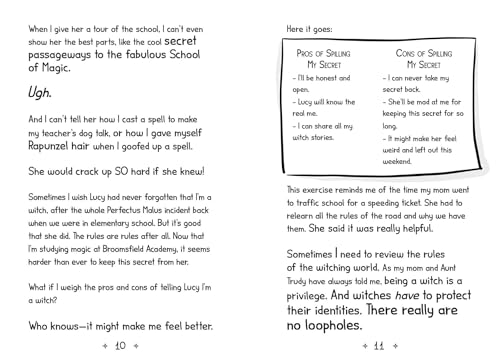 When I give her a tour of the school, I can't even
show her the best parts, like the cool secret
passageways to the fabulous School
of Magic.
Ugh.
And I can't tell her how I cast a spell to make
my teacher's dog talk, or how I gave myself
Rapunzel hair when I goofed up a spell.
She would crack up SO hard if she knew!
Sometimes I wish Lucy had never forgotten that I'm a
witch, after the whole Perfectus Malus incident back
when we were in elementary school. But it's good
that she did. The rules are rules after all. Now that
I'm studying magic at Broomsfield Academy, it seems
harder than ever to keep this secret from her.
What if I weigh the pros and cons of telling Lucy I'm
a witch?
Who knows—it might make me feel better.
10
Here it goes:
Pros of Spilling
My Secret
- I'll be honest and
open.
- Lucy will know the
real me.
- I can share all my
witch stories.
Cons of Spilling
My Secret
- I can never take my
secret back.
- She'll be mad at me for
keeping this secret for so
long.
- It might make her feel
weird and left out this
weekend.
This exercise reminds me of the time my mom went
to traffic school for a speeding ticket. She had to
relearn all the rules of the road and why we have
them. She said it was really helpful.
Sometimes I need to review the rules
of the witching world. As my mom and Aunt
Trudy have always told me, being a witch is a
privilege. And witches have to protect
their identities. There really are
no loopholes.
11